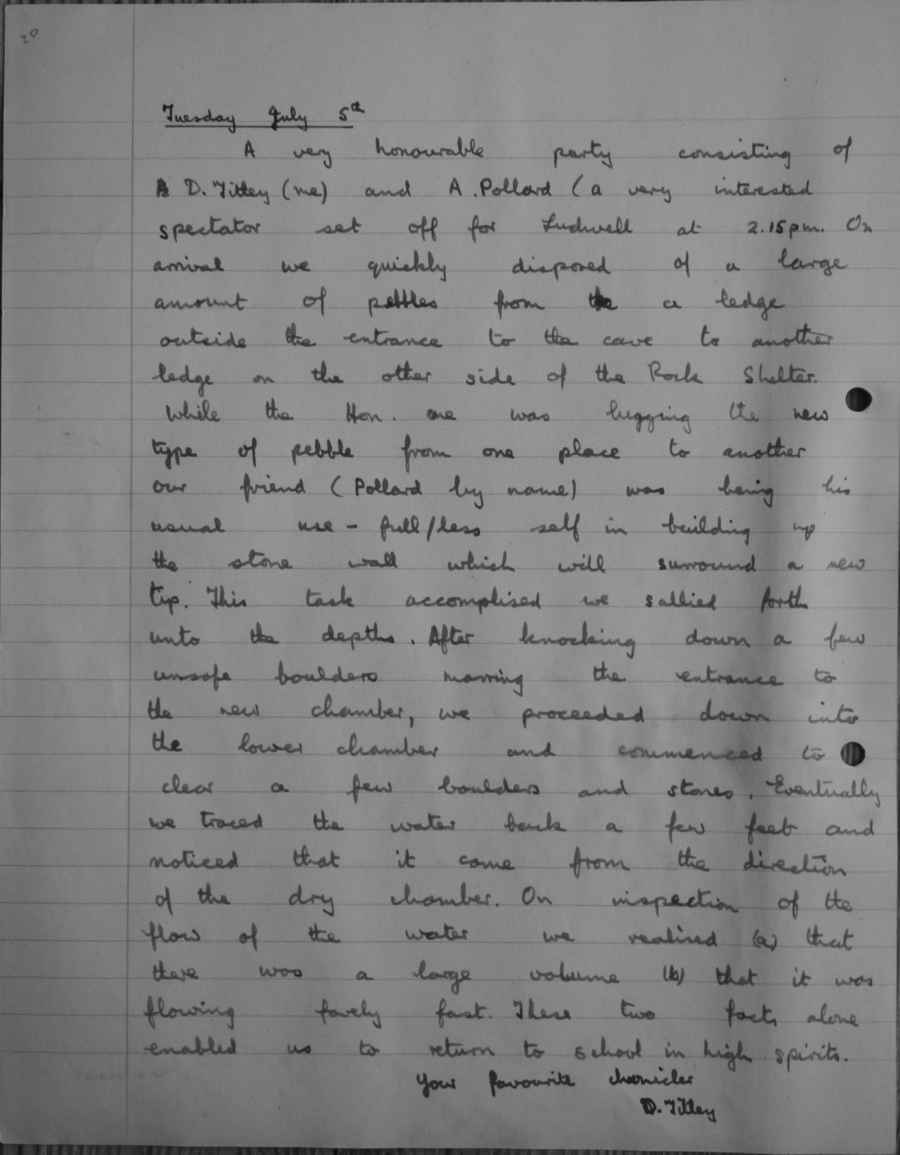 20
Tuesday July 5th
A very honourable party consisting of
D. Titley (me) and A. Pollard (a very interested
spectator set off for Ludwell at 2.15pm. On
arrival we quickly disposed of a large
amount of pebbles from a ledge
outside the entrance to the cave to another
ledge on the other side of the Rock Shelter.
While the Hon. one was lugging the new
type of pebble from one place to another
our friend (Pollard by name) was being his
usual use-full/less self in building up
the stone wall which will surround a new
tip. This task accomplised we sallied forth
unto the depths. After knocking down a few
unsafe boulders marring the entrance to
the new chamber, we proceeded down into
the lower chamber and commenced to
clear a few boulders and stones. Eventually
we traced the water back a few feet and
noticed that it came from the direction
of the dry chamber. On inspection of the
flow of the water we realised (a) that
there was a large volume (b) that it was
flowing farely fast. These two facts alone
enabled us to return to school in high spirits.
Your favourite chronicler
D. Titley